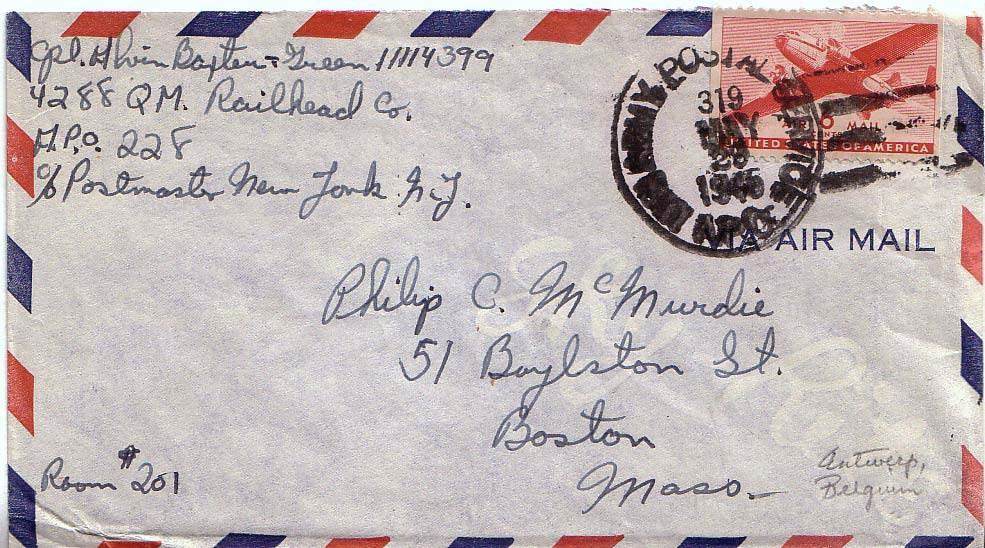 Cpl. Alvin Baxter-Green 11114399
4288 Q.M. Railhead Co.
A.P.O. 228
c/o Postmaster New York N.Y.
U.S. ARMY POSTAL SERVICE
319
MAY
28
1945
APO
AIR 6 MAIL
CENTS
UNITED STATES OF AMERICA
VIA AIR MAIL
Philip C. McMurdie
51 Boylston St.
Boston
Mass.
Room #201
Antwerp,
Belgium